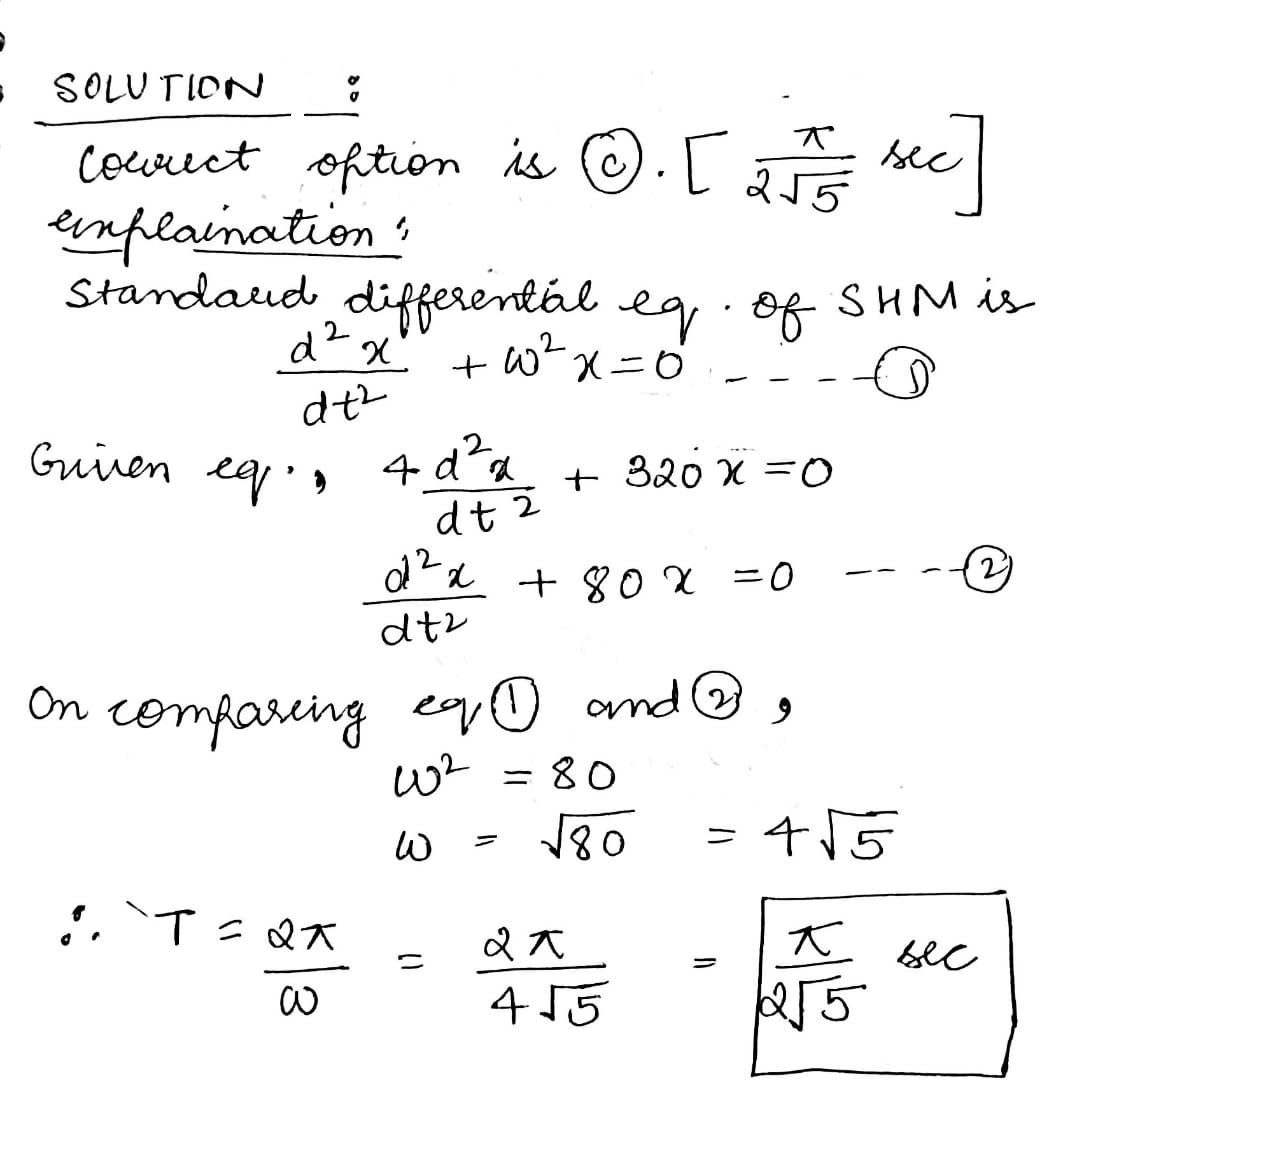 SOLUTION :
Correct option is (c). [π/2√5 sec]
explaination :
Standard differential eq. of SHM is
d²x/dt² + ω²x = 0 ---- ①
Given eq., 4 d²x/dt² + 320x = 0
d²x/dt² + 80x = 0 ---- ②
On comparing eq ① and ②,
ω² = 80
ω = √80 = 4√5
∴ T = 2π/ω = 2π/4√5 = π/2√5 sec